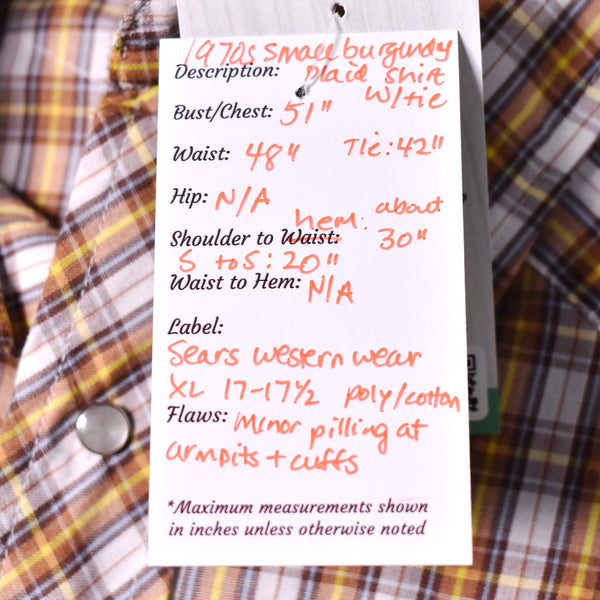 1970s small burgundy
Description: plaid shirt
w/tie
Bust/Chest: 51"
Waist: 48" Tie: 42"
Hip: N/A
hem: about
Shoulder to Waist: 30"
S to S: 20"
Waist to Hem: N/A
Label:
Sears western wear
XL 17-17½ poly/cotton
Flaws: Minor pilling at
armpits + cuffs
*Maximum measurements shown
in inches unless otherwise noted